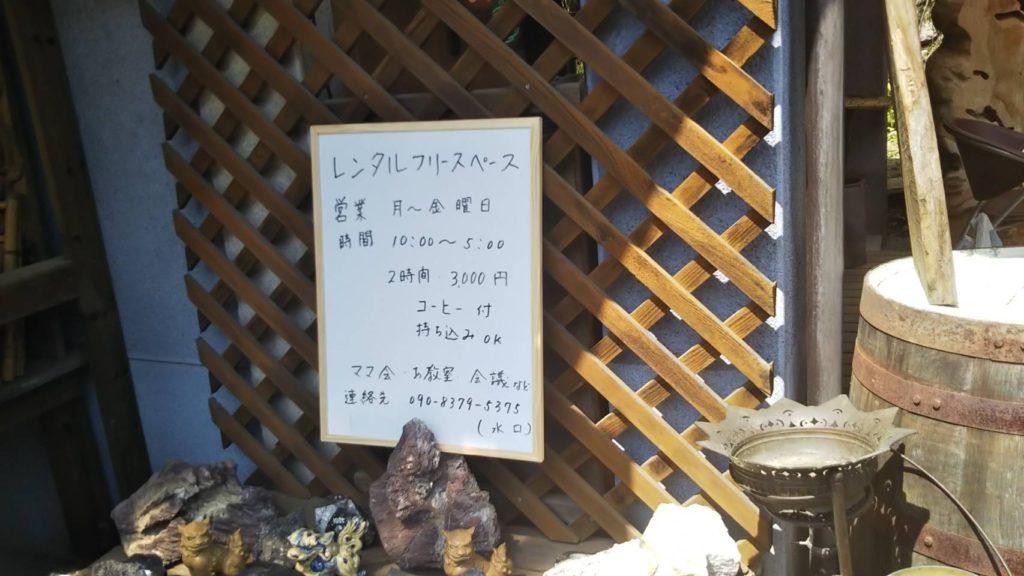 レンタルフリースペース
営業 月〜金曜日
時間 10:00〜5:00
2時間・3,000円
コーヒー付
持ち込みOK
ママ会・お教室・会議など
連絡先 090-8379-5375
(水口)